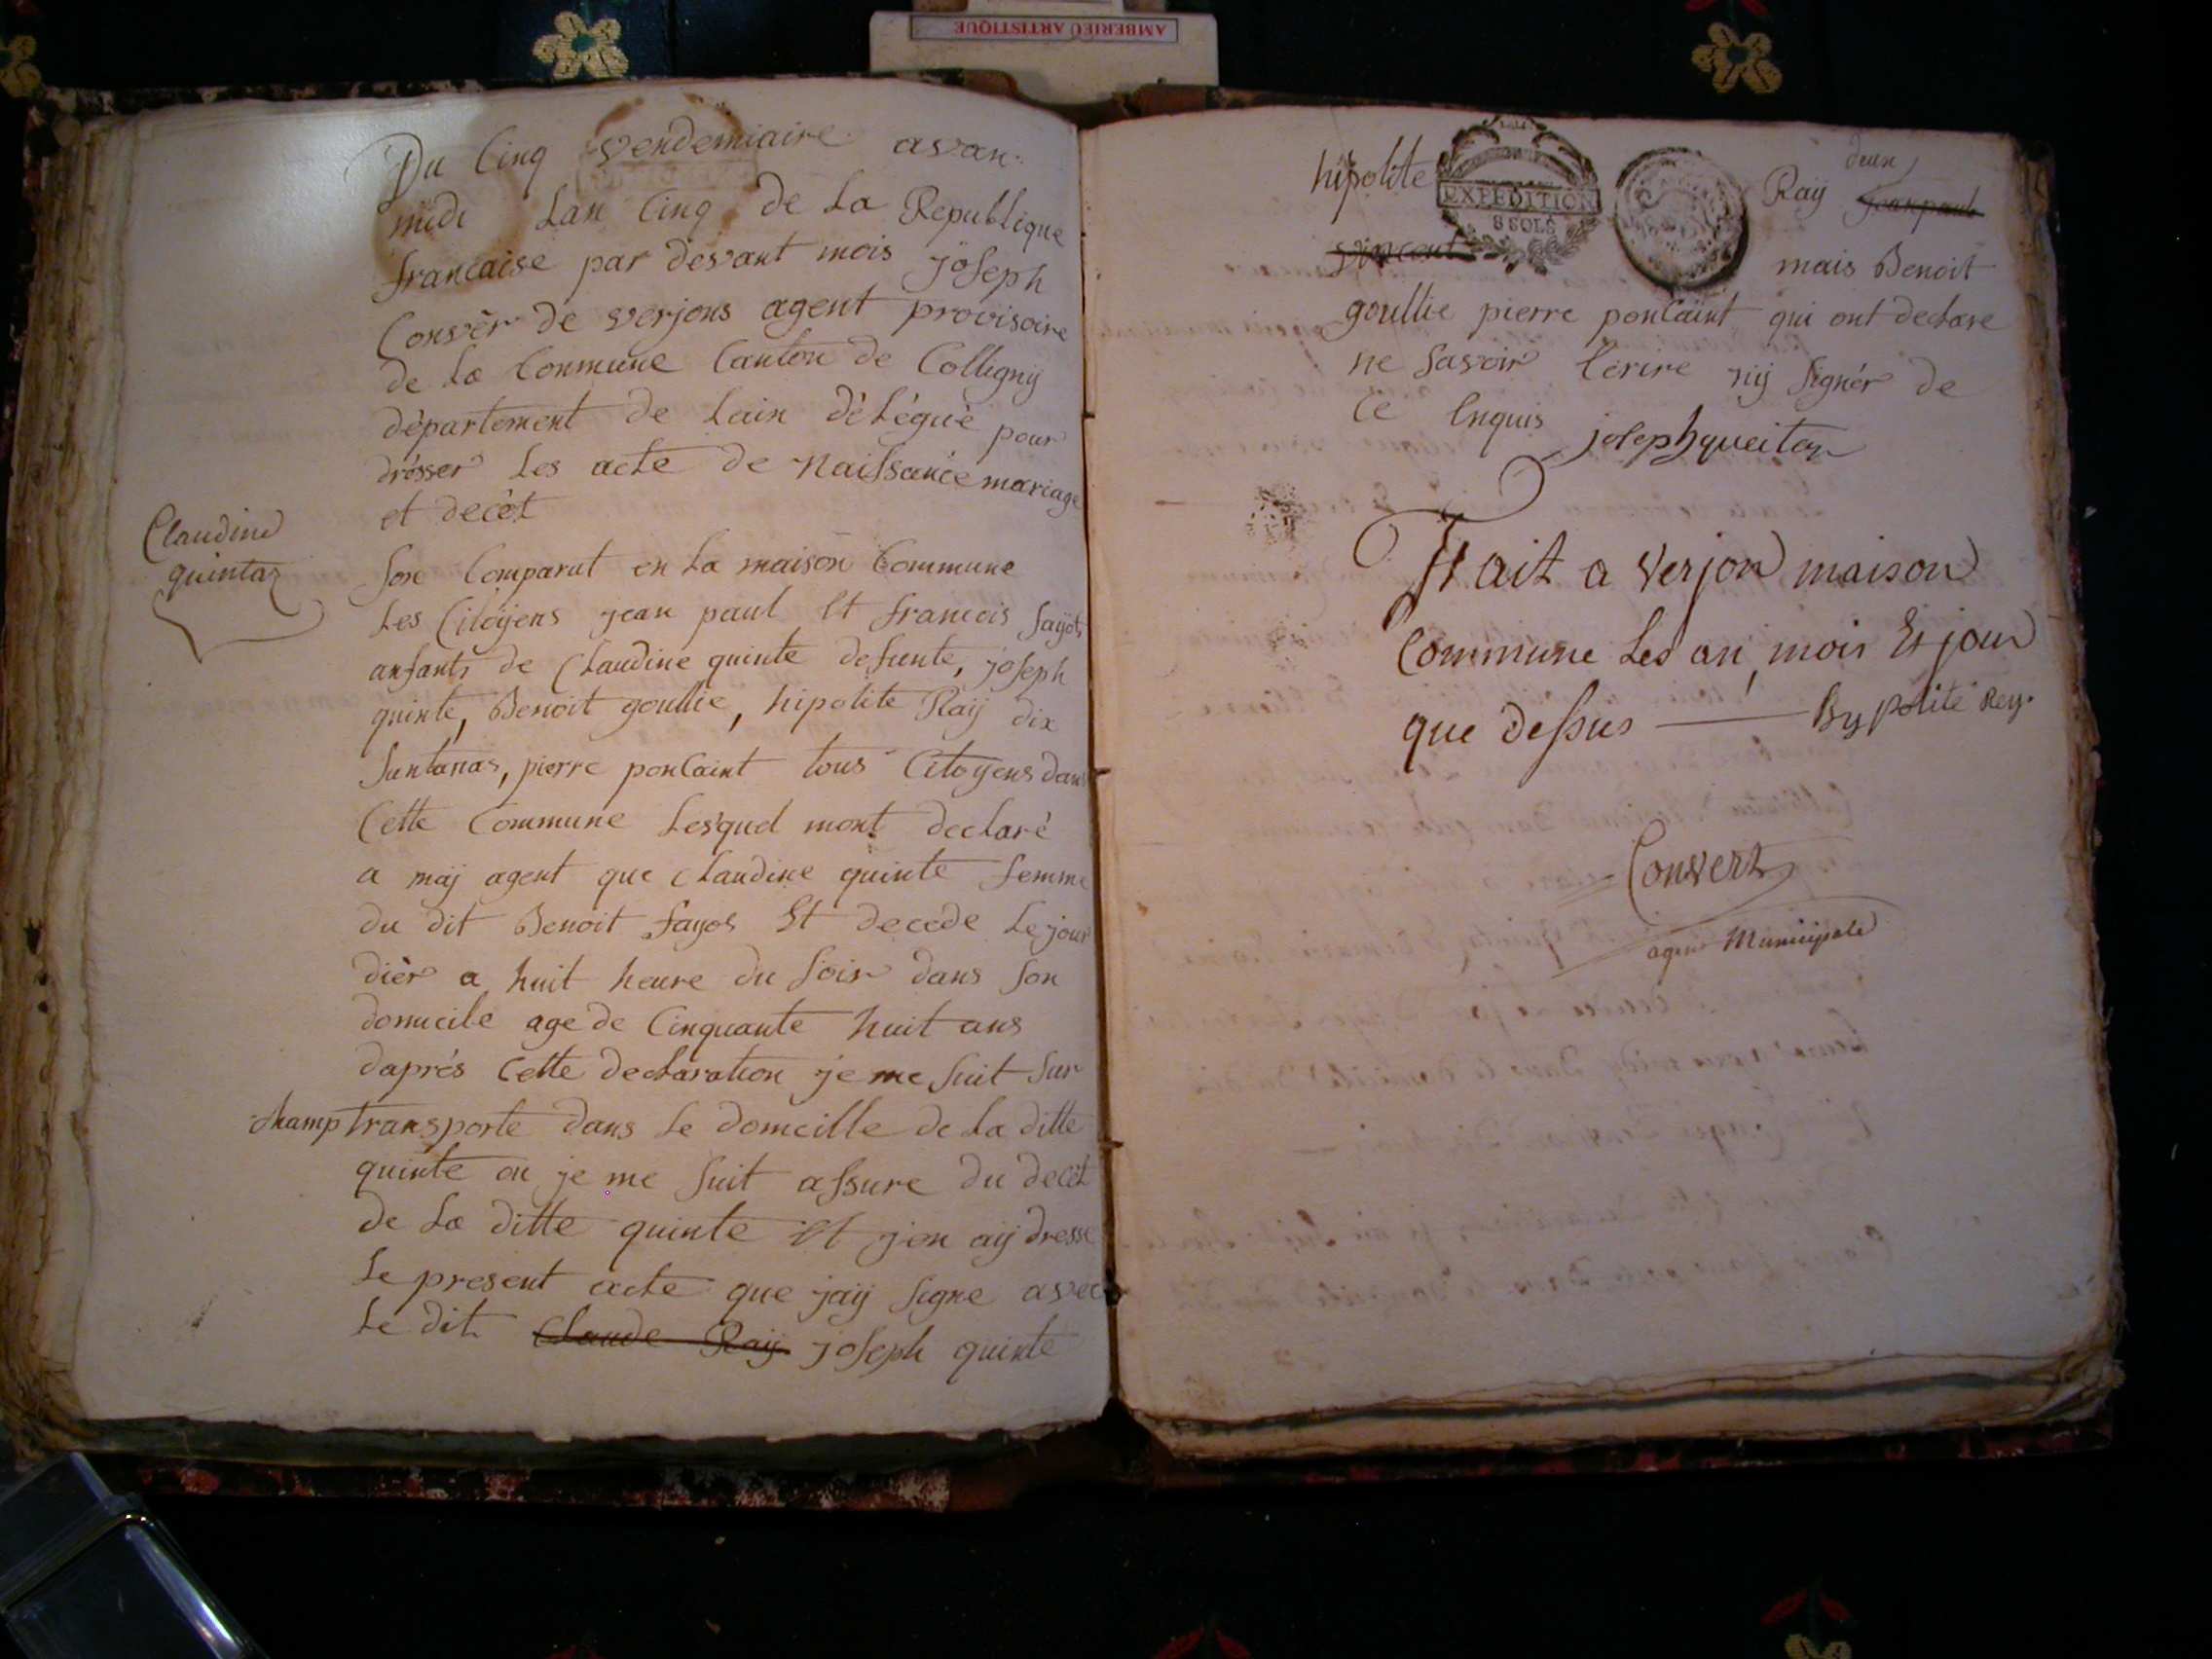 AMBERIEU ARTISTIQUE
Du Cinq vendemiaire avan
midi Lan Cinq de La Republique
francaise par devant mois joseph
Convèr de verjons agent provisoire
de La Conmune Canton de Colligny
département de Lain dèLéguè pour
drésser Les acte de Naissance mariage
et decèt
Claudine
quintaz
son Comparut en La maison Commune
Les Citoÿens jean paul Et francois fayot
anfants de Claudine quinte defunte, joseph
quinte, Benoit goullie, hipolite Raÿ dix
, pierre poncaint tous Citoÿens dans
Cette Commune Lesquel mont declaré
a maÿ agent que Claudine quinte femme
du dit Benoit fayot Et decede Le jour
dièr a huit heure du soir dans son
domicile age de Cinquante huit ans
daprés Cette declaration je me suit sur
champ transporte dans Le domcille de La ditte
quinte ou je me suit assure du decèt
de La ditte quinte Et jen aÿ dresse
Le present acte que jaÿ signe avec
Le dit Claude Raÿ joseph quinte
hipolite EXPEDITION 8 SOLS Raÿ deux jean paul
vincent mais Benoit
goullie pierre poncaint qui ont declare
ne savoir Ecrire nÿ signér de
Ce Enquis joseph queitaz
Fait a Verjon maison
Commune Les an, mois Et jour
que dessus — hypolite Rey.
Convert
agent Municipale